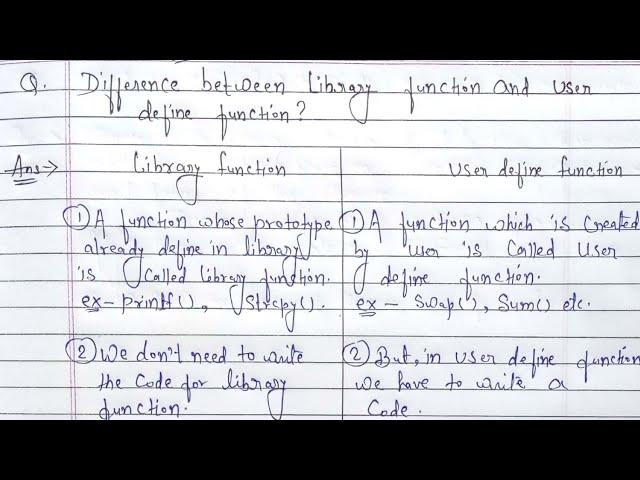 Q. Difference between library function and user
define function?
Ans→ library function
user define function
① A function whose prototype
already define in library
is called library function.
ex- printf(), Strcpy().
② We don't need to write
the code for library
function.
① A function which is created
by user is called user
define function.
ex - Swap(), Sum() etc.
② But, in user define function
we have to write a
Code.